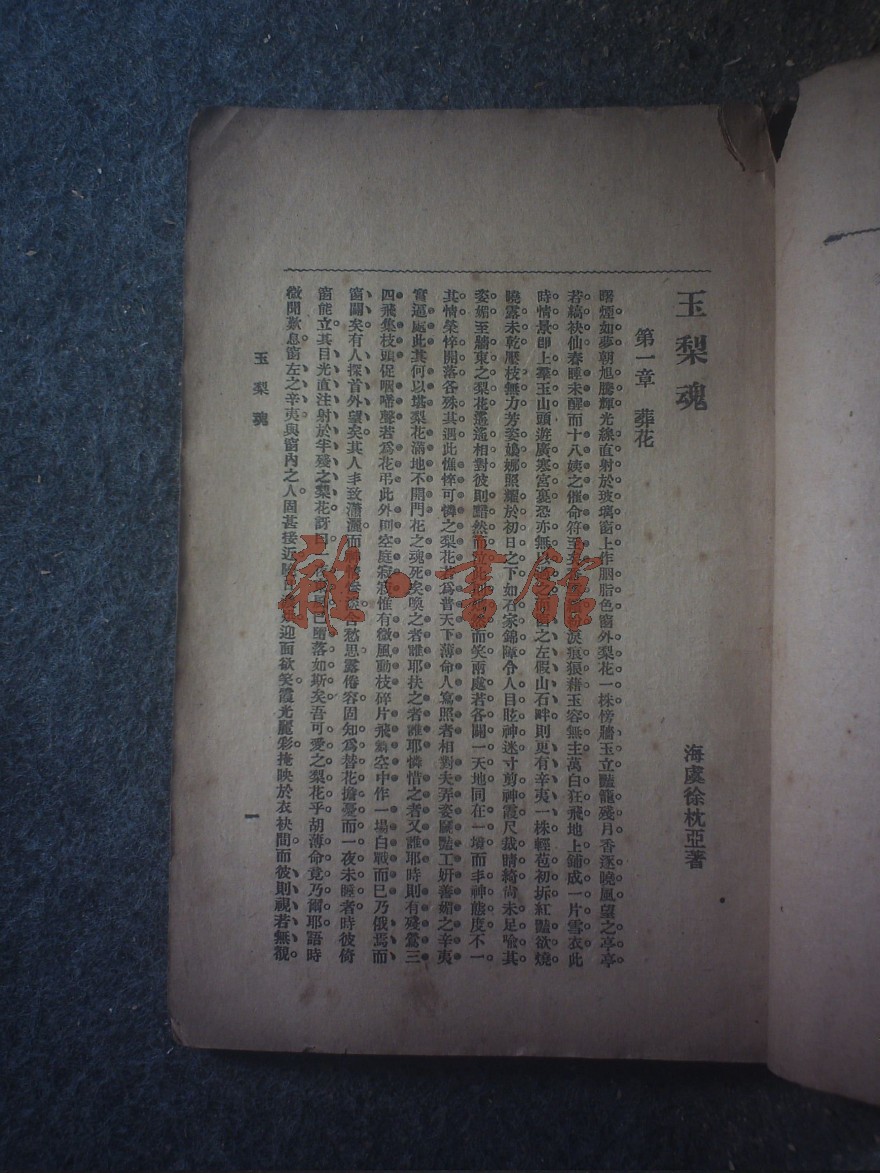 玉梨魂
海虞徐枕亞著
第一章 葬花
曙煙如夢朝旭騰輝光線直射於玻璃窗上作胭脂色窗外梨花一株傍牆玉立豔籠殘月香逐曉風望之亭亭
若縞袂仙春睡未醒而十八姨之催命符至矣淚痕狼藉玉容無主萬白狂飛地上鋪成一片雪衣此
時情景卽上羣玉山頭遊廣寒宮裏恐亦無以窗之左假山石畔則更有辛夷一株輕苞初坼紅豔欲燒
曉露未乾壓枝無力芳姿嬝娜照耀於初日之下如石家錦障令人目眩神迷寸剪神霞尺裁晴綺尙未足喩其
姿媚至牆東之梨花遙遙相對彼則黯然而泣此則嫣然而笑兩處若各闢一天地同在一境而丰神態度不一
其情榮悴開落各殊其遇此憔悴可憐之梨花若爲普天下薄命人寫照者相對夫弄姿鬭豔工妍善媚之辛夷
實逼處此其何以堪梨花滿地不開門花之魂死矣喚之者誰耶扶之者誰耶憐惜之者又誰耶時則有殘鶯三
四飛集枝頭促咽嘈聲若爲花弔此外則空庭寂寂惟有微風動枝碎片飛舞空中作一場白戰而已乃俄焉而
窗闢矣有人探首外望矣其人丰致瀟灑而神情愁思露倦容固知爲替花擔憂而一夜未睡者時彼倚
窗能立其目光直注射於半殘之梨花訝曰一夜已墮落如斯矣吾可愛之梨花乎胡薄命竟乃爾耶語時
微聞歎息窗左之辛夷與窗內之人固甚接近迎面欲笑霞光麗彩掩映於衣袂間而彼則視若無覩
玉梨魂
一
雜·書館